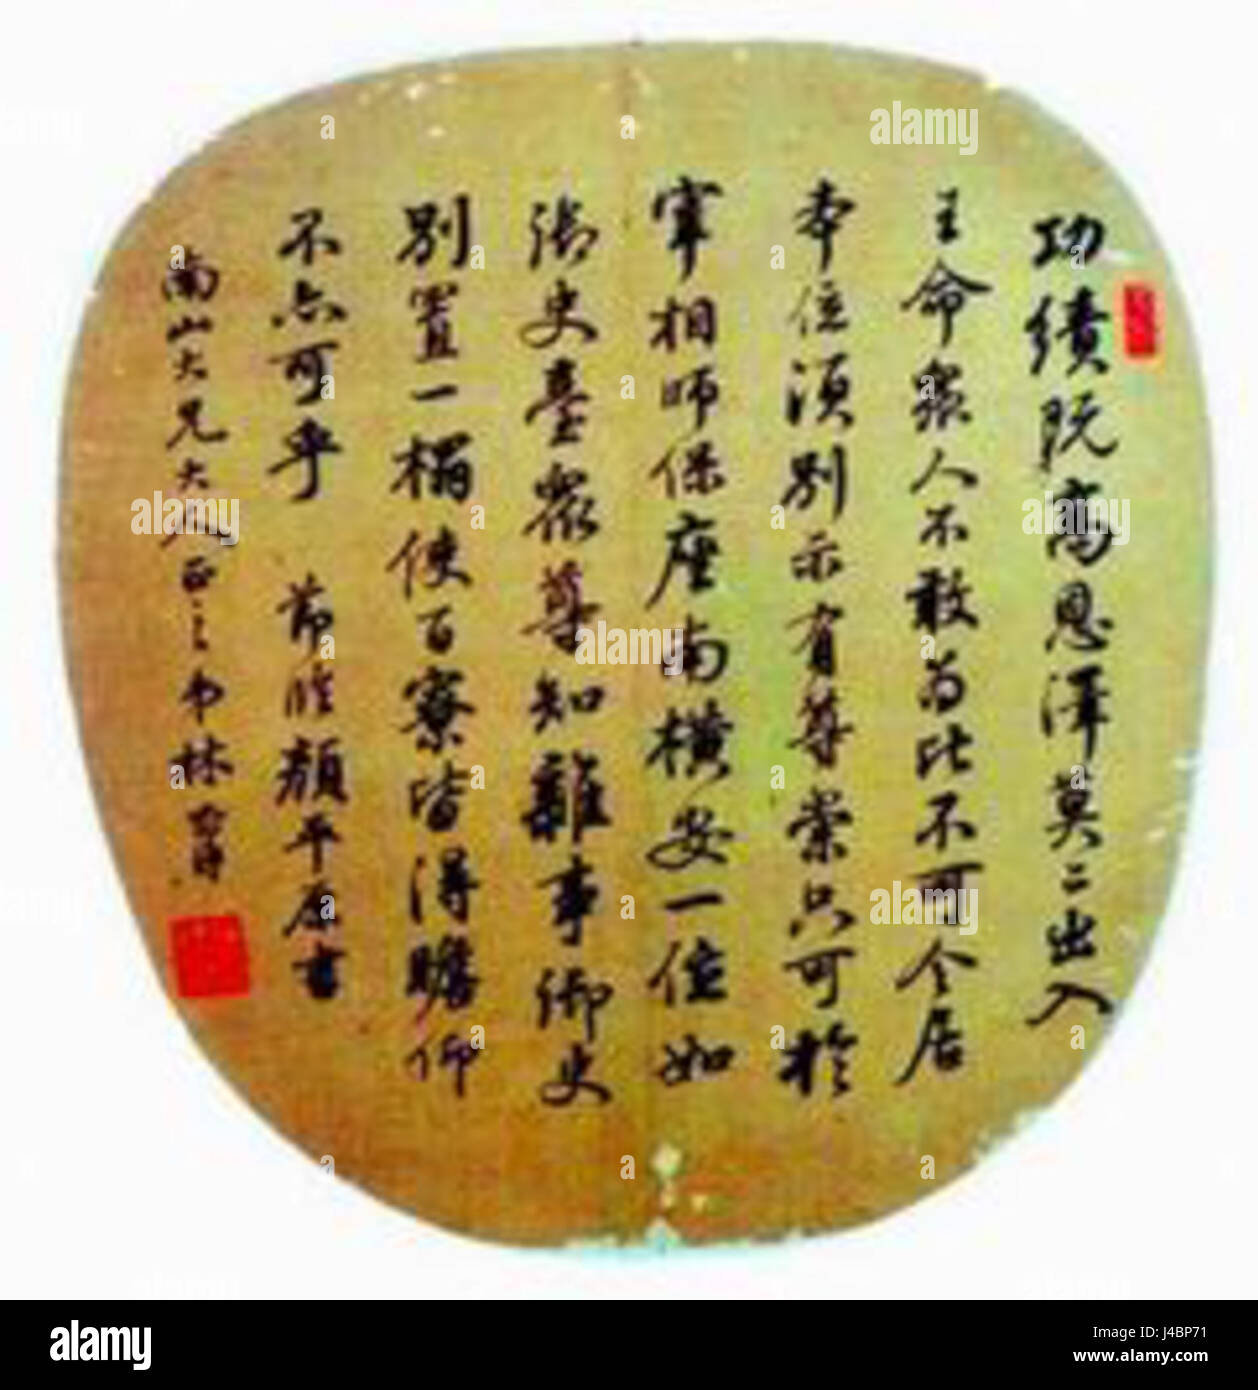 功績既高恩澤莫二出入
王命衆人不敢為比不可令居
本位須別示有尊崇只可於
宰相師保座南橫安一位如
御史臺衆尊知雜事御史
別置一榻使百寮皆得瞻仰
不亦可乎 節臨顏平原書
南山大兄大人正之 弟林
a alamy stock photo
Image ID: J4BP71
www.alamy.com